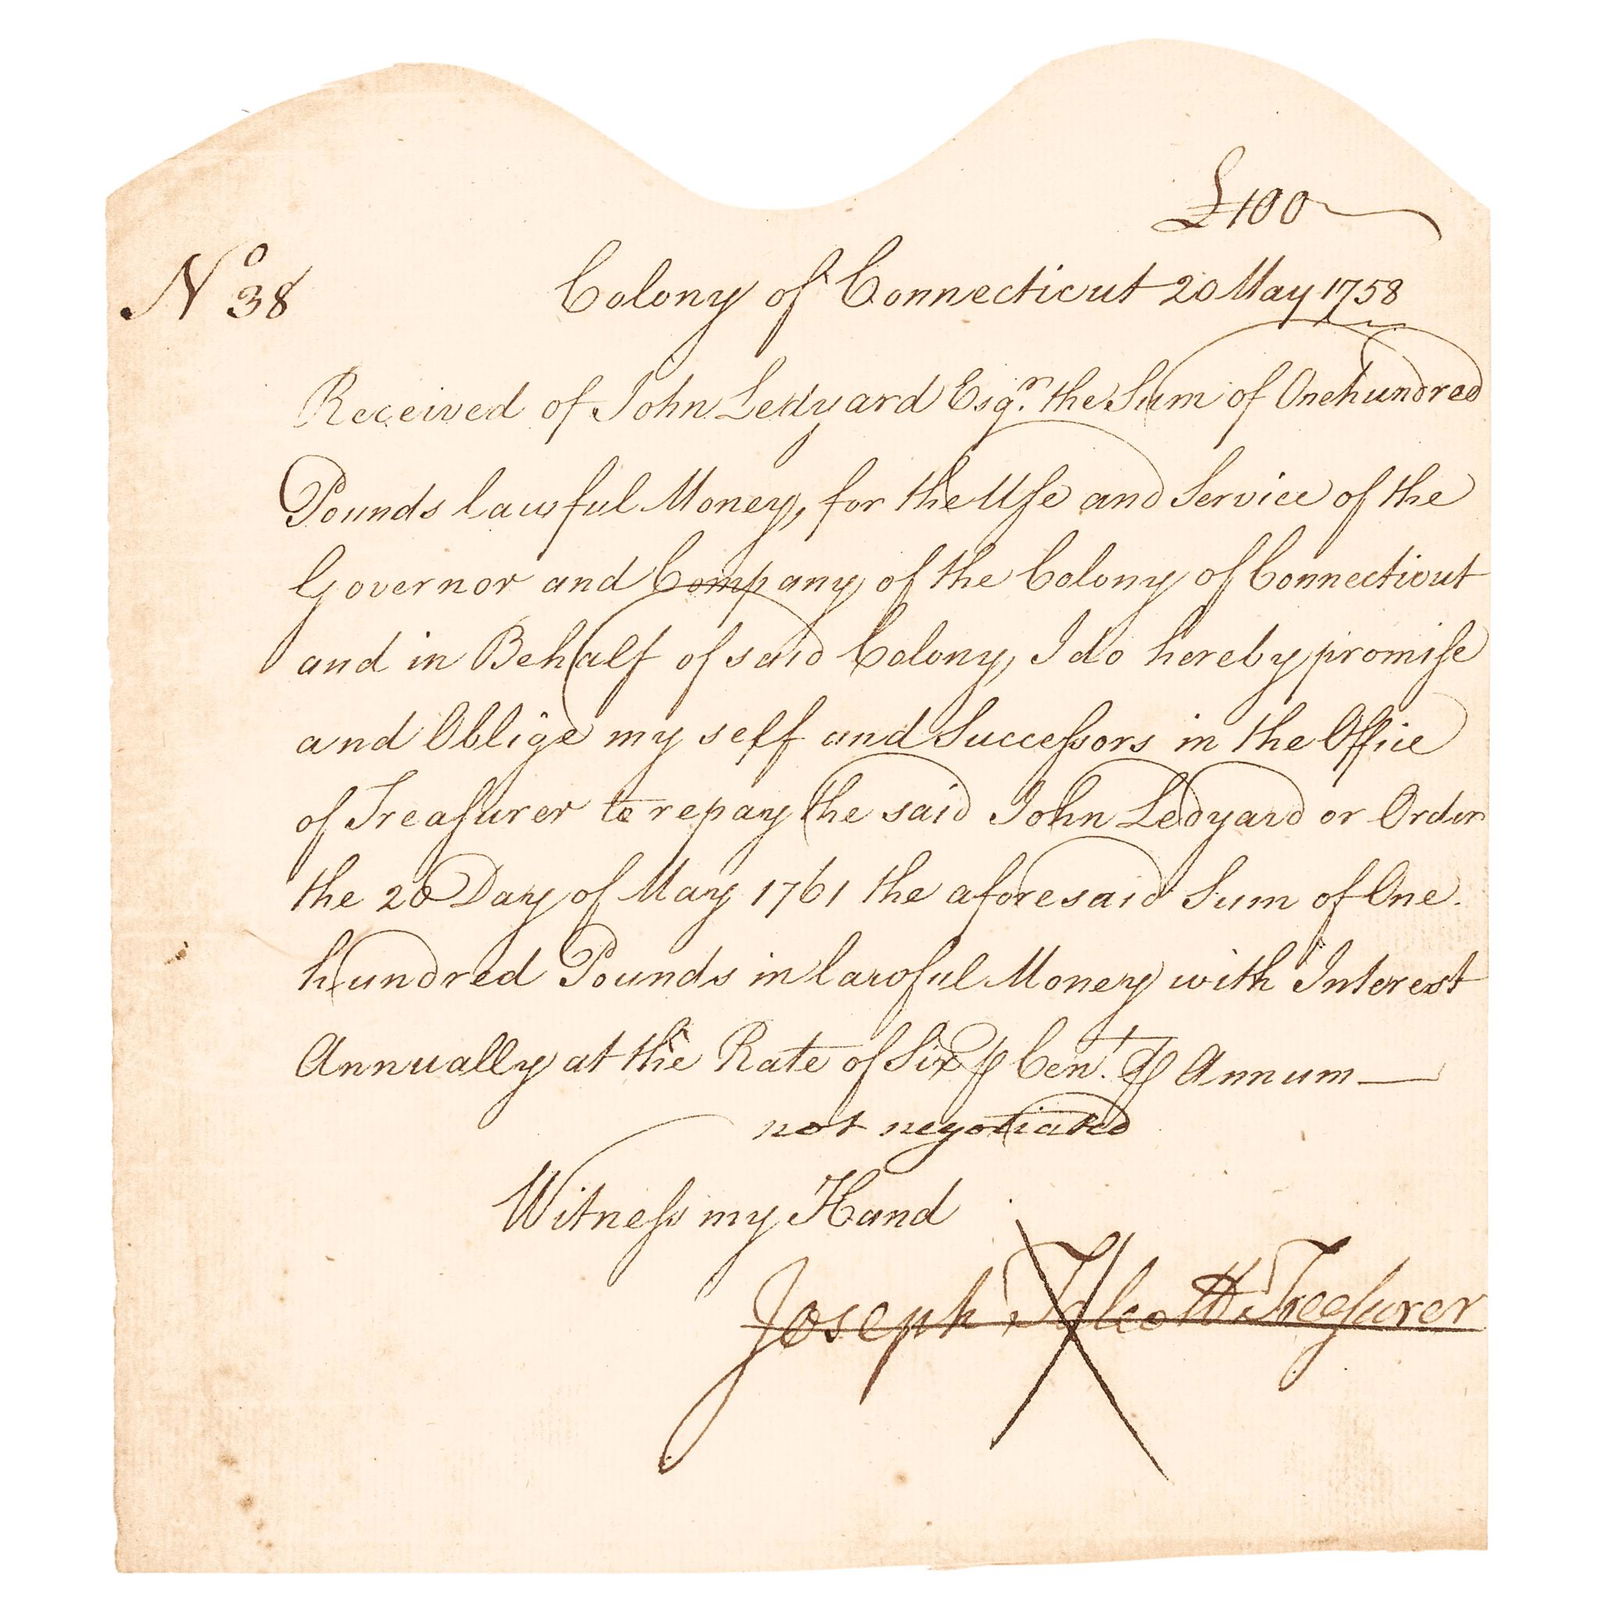 £100
No 38
Colony of Connecticut 20 May 1758
Received of John Ledyard Esqr. the Sum of One hundred
Pounds lawful Money, for the Uſe and Service of the
Governor and Company of the Colony of Connecticut
and in Behalf of said Colony, I do hereby promiſe
and Oblige my self and Succeſsors in the Office
of Treaſurer to repay the said John Ledyard or Order
the 20 Day of May 1761 the aforesaid Sum of One
hundred Pounds in lawful Money with Interest
Annually at the Rate of Six ⅌ Cent. ⅌ Annum
not negotiated
Witneſs my Hand
Joseph Talcott Treeſurer